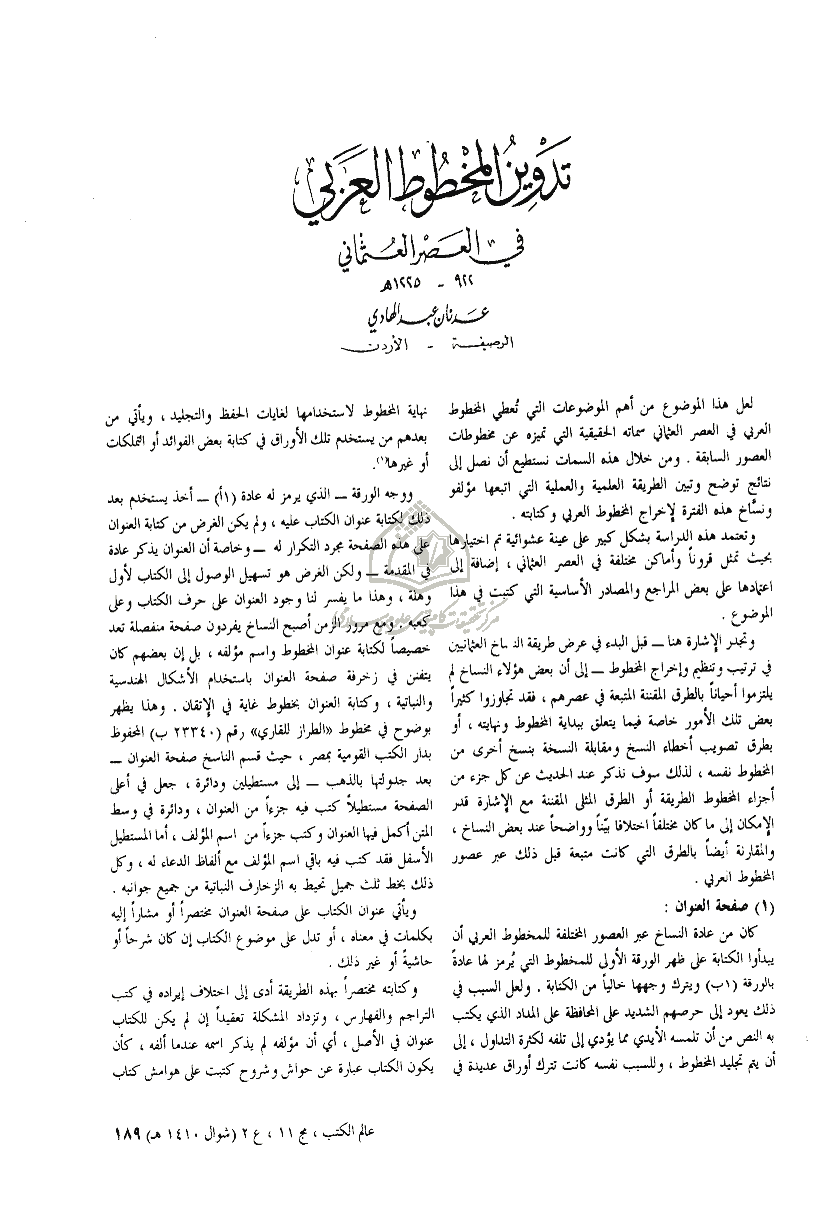 تدوين المخطوط العربي
في العصر العثماني
٩٢٢ - ١٢٢٥هـ
عدنان عبد الهادي
الرصيفة - الأردن
لعل هذا الموضوع من أهم الموضوعات التي تُعطي المخطوط
العربي في العصر العثماني سماته الحقيقية التي تميزه عن مخطوطات
العصور السابقة . ومن خلال هذه السمات نستطيع أن نصل إلى
نتائج توضح وتبين الطريقة العلمية والعملية التي اتبعها مؤلفو
ونسَّاخ هذه الفترة لإخراج المخطوط العربي وكتابته .
وتعتمد هذه الدراسة بشكل كبير على عينة عشوائية تم اختيارها
بحيث تمثل قروناً وأماكن مختلفة في العصر العثماني ، إضافة إلى
اعتمادها على بعض المراجع والمصادر الأساسية التي كتبت في هذا
الموضوع .
وتجدر الإشارة هنا ــ قبل البدء في عرض طريقة النساخ العثمانيين
في ترتيب وتنظيم وإخراج المخطوط ــ إلى أن بعض هؤلاء النساخ لم
يلتزموا أحياناً بالطرق المقننة المتبعة في عصرهم ، فقد تجاوزوا كثيراً
بعض تلك الأمور خاصة فيما يتعلق ببداية المخطوط ونهايته ، أو
بطرق تصويب أخطاء النسخ ومقابلة النسخة بنسخ أخرى من
المخطوط نفسه ، لذلك سوف نذكر عند الحديث عن كل جزء من
أجزاء المخطوط الطريقة أو الطرق المثلى المقننة مع الإشارة قدر
الإمكان إلى ما كان مختلفاً اختلافا بيّناً وواضحاً عند بعض النساخ ،
والمقارنة أيضاً بالطرق التي كانت متبعة قبل ذلك عبر عصور
المخطوط العربي .
(١) صفحة العنوان :
كان من عادة النساخ عبر العصور المختلفة للمخطوط العربي أن
يبدأوا الكتابة على ظهر الورقة الأولى للمخطوط التي يُرمز لها عادةً
بالورقة (١ب) ويترك وجهها خالياً من الكتابة . ولعل السبب في
ذلك يعود إلى حرصهم الشديد على المحافظة على المداد الذي يكتب
به النص من أن تلمسه الأيدي مما يؤدي إلى تلفه لكثرة التداول ، إلى
أن يتم تجليد المخطوط ، وللسبب نفسه كانت تترك أوراق عديدة في
نهاية المخطوط لاستخدامها لغايات الحفظ والتجليد ، ويأتي من
بعدهم من يستخدم تلك الأوراق في كتابة بعض الفوائد أو التملكات
أو غيرها(١).
ووجه الورقة ــ الذي يرمز له عادة (١أ) ــ أخذ يستخدم بعد
ذلك لكتابة عنوان الكتاب عليه ، ولم يكن الغرض من كتابة العنوان
على هذه الصفحة مجرد التكرار له ــ وخاصة أن العنوان يذكر عادة
في المقدمة ــ ولكن الغرض هو تسهيل الوصول إلى الكتاب لأول
وهلة ، وهذا ما يفسر لنا وجود العنوان على حرف الكتاب وعلى
كعبه . ومع مرور الزمن أصبح النساخ يفردون صفحة منفصلة تعد
خصيصاً لكتابة عنوان المخطوط واسم مؤلفه ، بل إن بعضهم كان
يتفنن في زخرفة صفحة العنوان باستخدام الأشكال الهندسية
والنباتية ، وكتابة العنوان بخطوط غاية في الإتقان . وهذا يظهر
بوضوح في مخطوط «الطراز للقاري» رقم (٢٣٣٤٠ ب) المحفوظ
بدار الكتب القومية بمصر ، حيث قسم الناسخ صفحة العنوان ــ
بعد جدولتها بالذهب ــ إلى مستطيلين ودائرة ، جعل في أعلى
الصفحة مستطيلاً كتب فيه جزءاً من العنوان ، ودائرة في وسط
المتن أكمل فيها العنوان وكتب جزءاً من اسم المؤلف ، أما المستطيل
الأسفل فقد كتب فيه باقي اسم المؤلف مع ألفاظ الدعاء له ، وكل
ذلك بخط ثلث جميل تحيط به الزخارف النباتية من جميع جوانبه .
ويأتي عنوان الكتاب على صفحة العنوان مختصراً أو مشاراً إليه
بكلمات في معناه ، أو تدل على موضوع الكتاب إن كان شرحاً أو
حاشيةً أو غير ذلك .
وكتابته مختصراً بهذه الطريقة أدى إلى اختلاف إيراده في كتب
التراجم والفهارس ، وتزداد المشكلة تعقيداً إن لم يكن للكتاب
عنوان في الأصل ، أي أن مؤلفه لم يذكر اسمه عندما ألفه ، كأن
يكون الكتاب عبارة عن حواش وشروح كتبت على هوامش كتاب
عالم الكتب ، مج ١١ ، ع ٢ (شوال ١٤١٠ هـ) ١٨٩